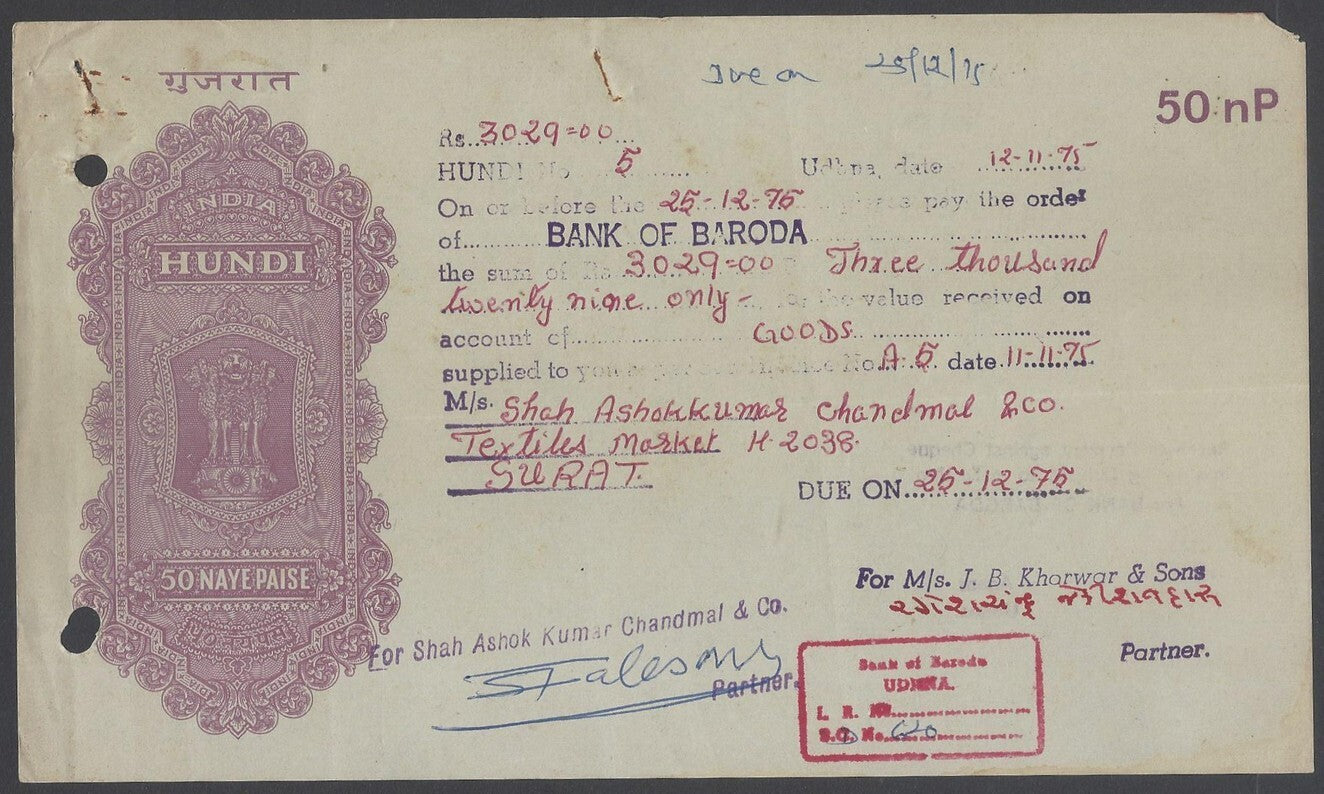 गुजरात
INDIA
HUNDI
50 NAYE PAISE
Due on 25/12/75
50 nP
Rs. 3029=00
HUNDI No. 5 Udhna, date 12-11-75
On or before the 25-12-75 please pay the order
of BANK OF BARODA
the sum of Rs. 3029=00 Three thousand
twenty nine only - for the value received on
account of GOODS
supplied to you as per our Invoice No. A-5 date 11-11-75
M/s. Shah Ashokkumar Chandmal & Co.
Textiles Market H 2038.
SURAT.
DUE ON 25-12-75
For M/s. J. B. Khorwar & Sons
Partner.
For Shah Ashok Kumar Chandmal & Co.
Partner.
Bank of Baroda
UDHNA.
L. R. No.
S.C. No.